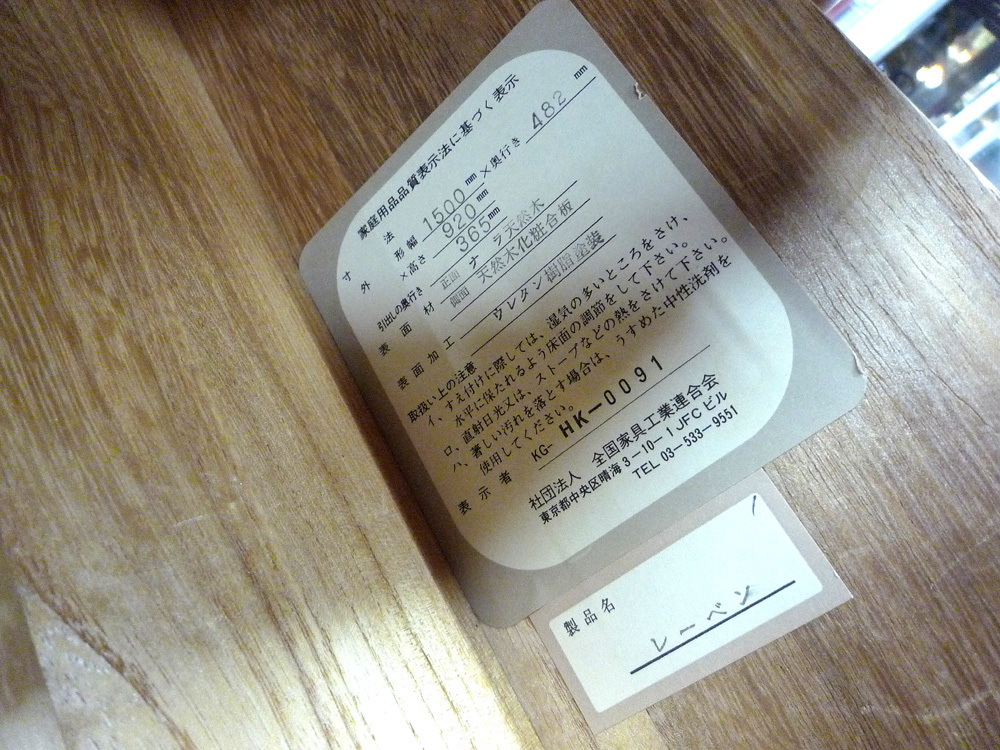 家庭用品品質表示法に基づく表示
寸法
外形幅 1500mm×奥行き 482mm
×高さ 920mm
引出しの奥行き 365mm
表面材 正面 ナラ天然木
側面 天然木化粧合板
表面加工 ウレタン樹脂塗装
取扱い上の注意
イ、すえ付けに際しては、湿気の多いところをさけ、
水平に保たれるよう床面の調節をして下さい。
ロ、直射日光又は、ストーブなどの熱をさけて下さい。
ハ、著しい汚れを落とす場合は、うすめた中性洗剤を
使用してください。
KG- HK-0091
表示者
社団法人 全国家具工業連合会
東京都中央区晴海3-10-1 JFCビル
TEL 03-533-9551
製品名
レーベン